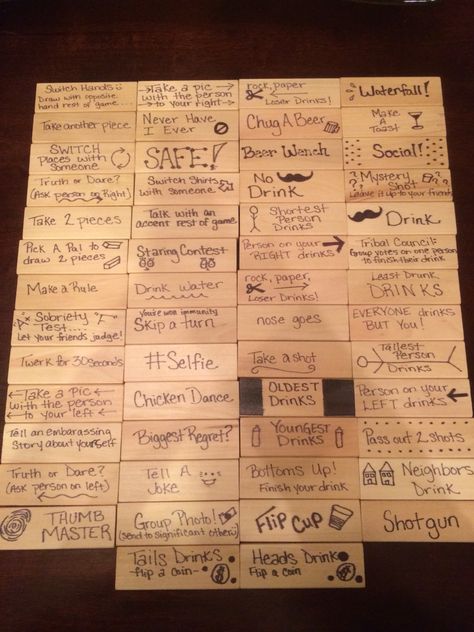 Switch Hands
Draw with opposite
hand rest of game....
Take a pic
with the person
to your right
rock, paper
Loser Drinks!
Waterfall!
Take another piece
Never Have
I Ever
Chug A Beer
Make
A
Toast
SWITCH
Places with
Someone
SAFE!
Beer Wench
Social!
Truth or Dare?
(Ask person on Right)
Switch Shirts
with someone
No
Drink
Mystery
Shot
Leave it up to your friends
Take 2 pieces
Talk with an
accent rest of game
Shortest
Person
Drinks
Drink
Pick A Pal to
draw 2 pieces
Staring Contest
Person on your
RIGHT drinks
Tribal Council:
Group votes on one person
to finish their drink
Make a Rule
Drink water
rock, paper,
Loser Drinks!
Least Drunk
DRINKS
Sobriety
Test....
Let your friends judge!
You've won immunity
Skip a turn
nose goes
EVERYONE drinks
BUT You!
Twerk for 30 seconds
#Selfie
Take a shot
Tallest
Person
Drinks
Take a Pic
with the person
to your left
Chicken Dance
OLDEST
Drinks
Person on your
LEFT drinks
Tell an embarassing
Story about yourself
Biggest Regret?
Youngest
Drinks
Pass out 2 shots
Truth or Dare?
(Ask person on left)
Tell A
Joke
Bottoms Up!
Finish your drink
Neighbors
Drink
THUMB
MASTER
Group Photo!
(send to significant others)
Flip Cup
Shotgun
Tails Drinks
flip a coin
$
Heads Drink
Flip a coin